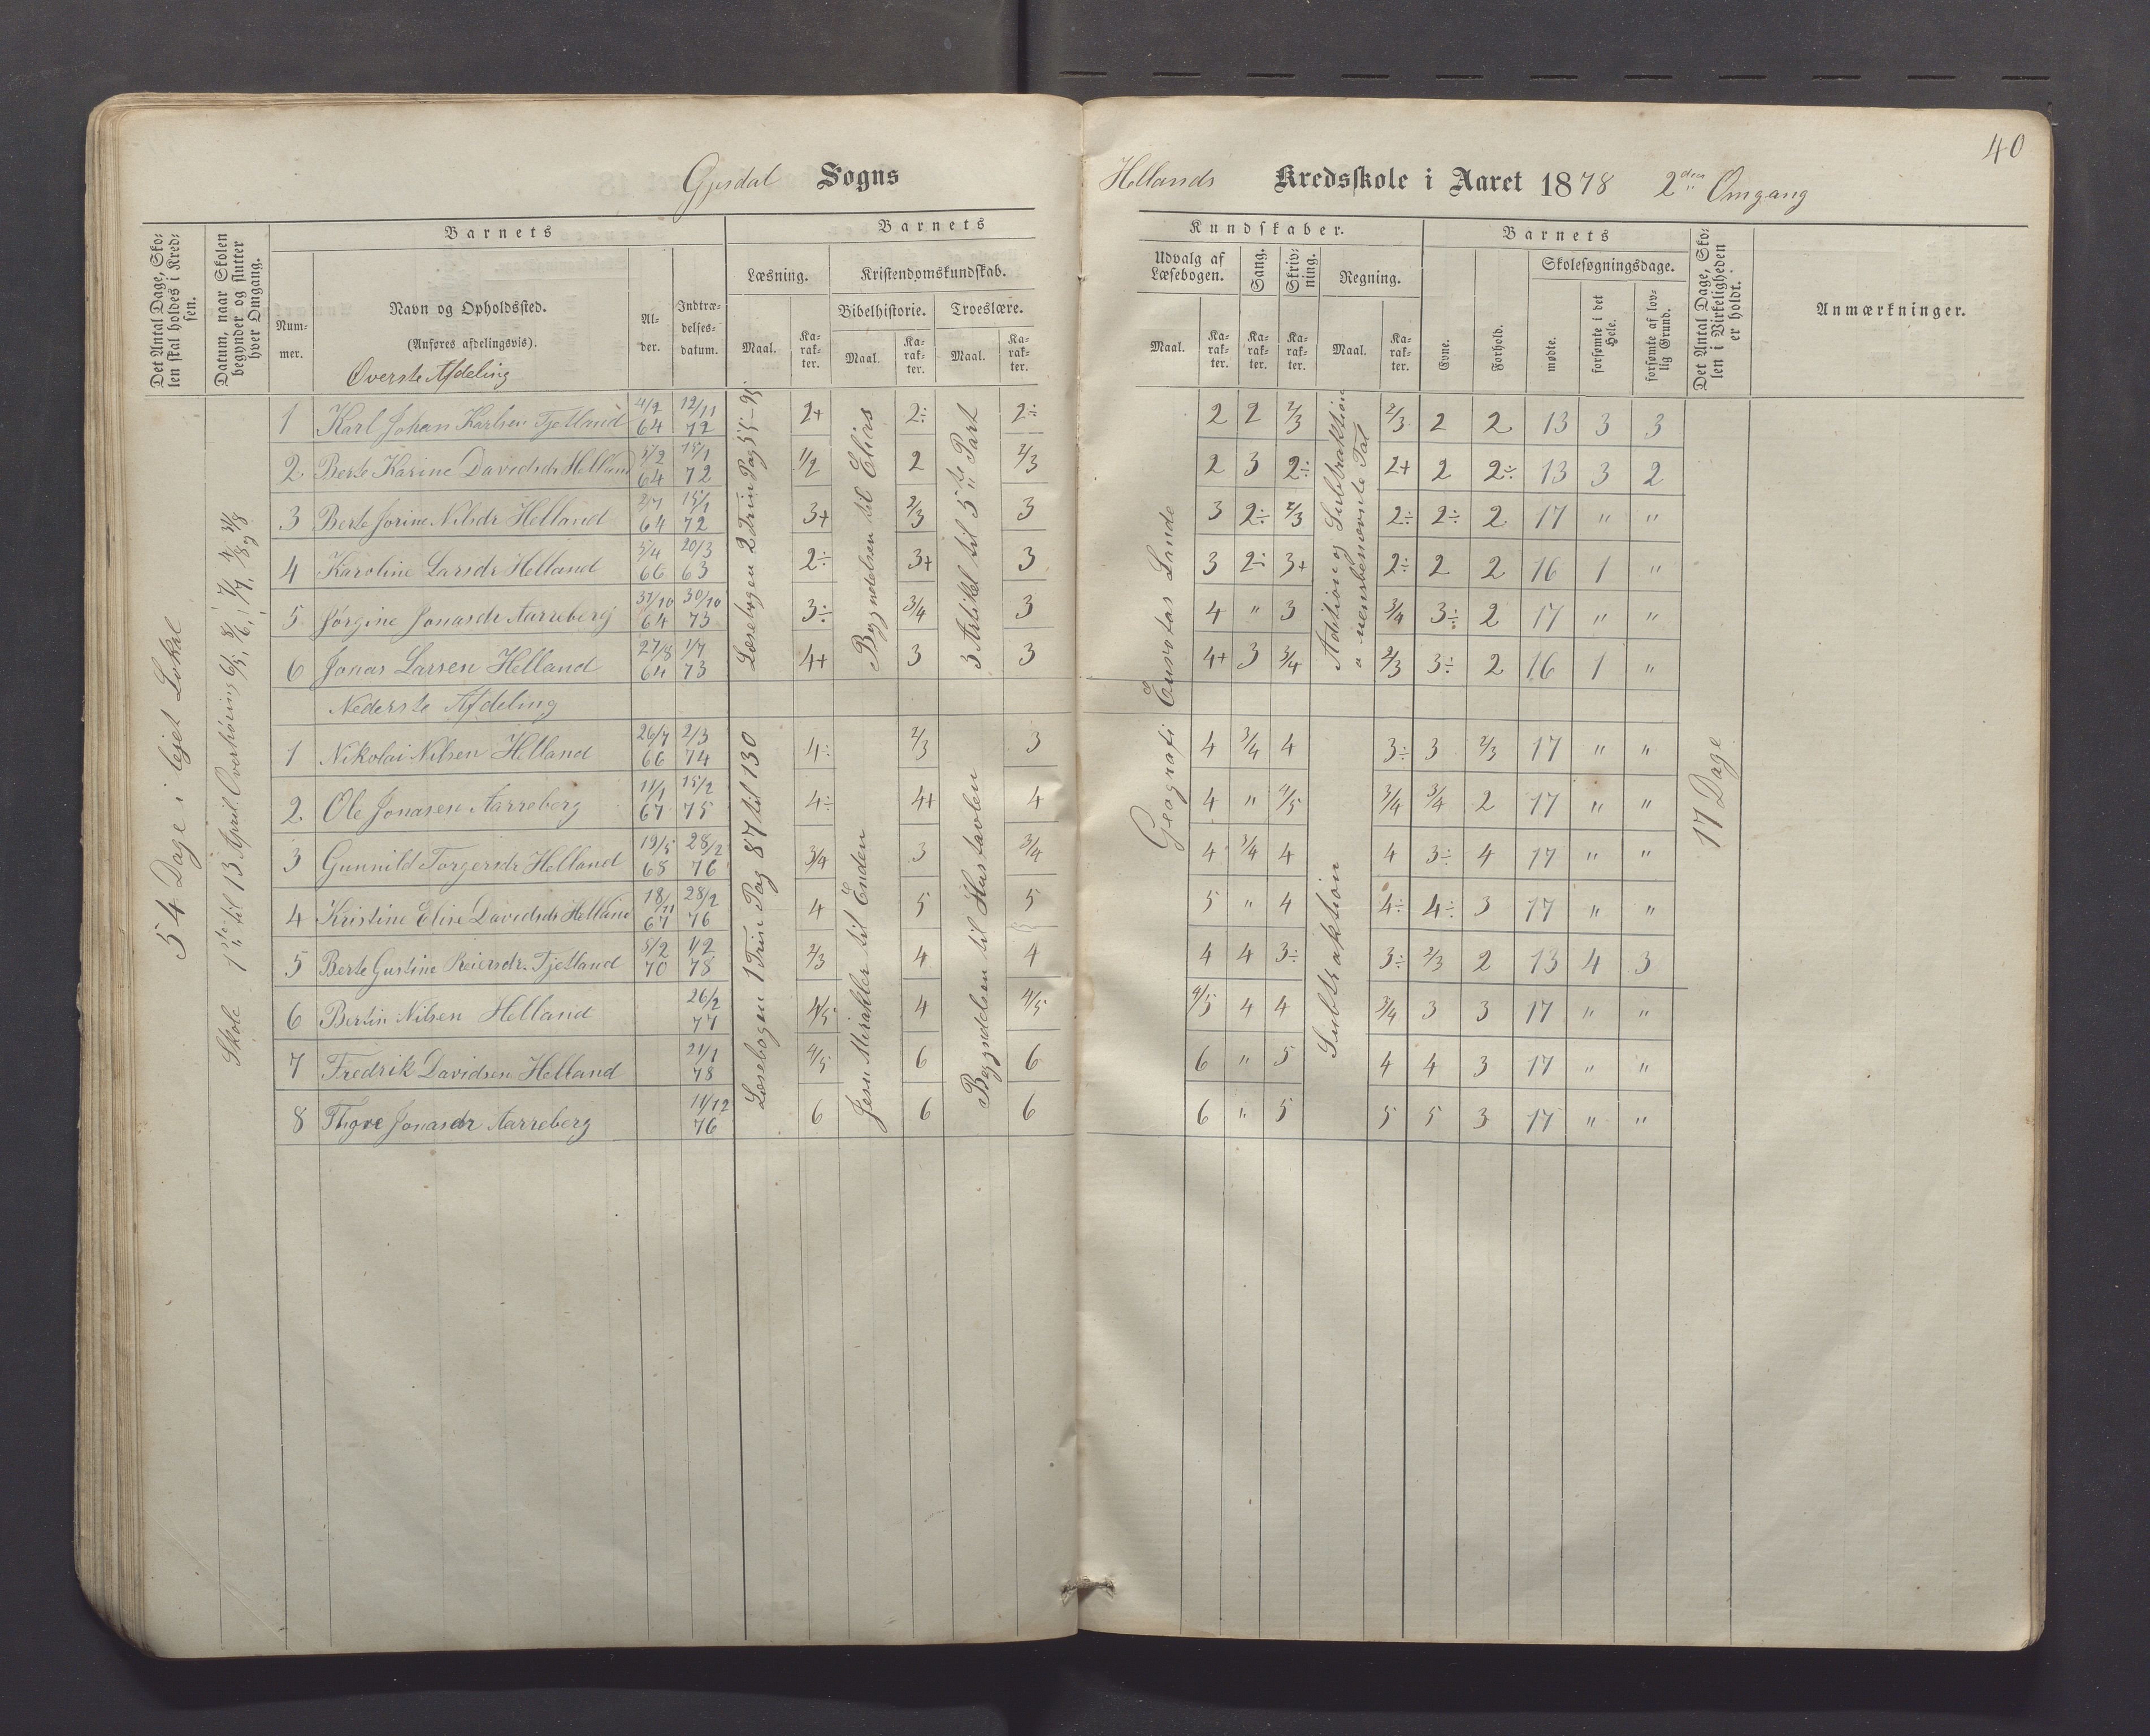 40
Gjesdal Sogns Hellands Kredsskole i Aaret 1878 2den Omgang
Det Antal Dage, Skolen skal holdes i Kredsen.
Datum, naar Skolen begynder og slutter hver Omgang.
Barnets
Nummer.
Navn og Opholdssted.
(Anføres afdelingsvis).
Alder.
Indtrædelsesdatum.
Barnets Kundskaber.
Læsning.
Maal. Karakter.
Kristendomskundskab.
Bibelhistorie. Troeslære.
Maal. Karakter. Maal. Karakter.
Udvalg af Læsebogen.
Maal. Karakter.
Sang. Karakter.
Skrivning. Karakter.
Regning.
Maal. Karakter.
Barnets
Evne. Forhold.
Skolesøgningsdage.
mødte. forsømte i det Hele. forsømte af lovlig Grund.
Det Antal Dage, Skolen i Virkeligheden er holdt.
Anmærkninger.
54 Dage i lejet Lokal
Skole 1ste til 13 April. Overhøring
Øverste Afdeling
Læsebogen 2 Trin Pag 55-95
Begyndelsen til Elias
3 Artikel til 5te Part
Geografi Europas Lande
Addition og Subtraktion
uensbenævnte Tal
17 Dage
1 Karl Johan Karlsen Tjetland 4/2 64 12/11 72 2+ 2÷ 2÷ 2 2 2/3 2/3 2 2 13 3 3
2 Berte Karine Davidsdr Helland 5/2 64 15/1 72 1/2 2 2/3 2 3 2÷ 2+ 2 2÷ 13 3 2
3 Berte Jorine Nilsdr Helland 2/7 64 15/1 72 3+ 2/3 3 3 2÷ 2/3 2÷ 2÷ 2 17 " "
4 Karoline Larsdr Helland 5/4 66 20/3 63 2÷ 3+ 3 3 2÷ 3+ 2÷ 2 2 16 1 "
5 Jørgine Jonasdr Aarreberg 31/10 64 30/10 73 3÷ 3/4 3 4 " 3 3/4 3÷ 2 17 " "
6 Jonas Larsen Helland 27/8 64 1/7 73 4+ 3 3 4+ 3 3/4 2/3 3÷ 2 16 1 "
Nederste Afdeling
Læsebogen 1 Trin Pag 87 til 130
Jesu Mirakler til Enden
Begyndelsen til Hustavlen
Subtraktion
1 Nikolai Nilsen Helland 26/7 66 2/3 74 4÷ 2/3 3 4 3/4 4 3÷ 3 2/3 17 " "
2 Ole Jonasen Aarreberg 11/1 67 15/2 75 4÷ 4+ 4 4 " 4/5 3/4 3/4 2 17 " "
3 Gunnild Torgersdr Helland 19/5 68 28/2 76 3/4 3 3/4 4 3/4 4 4 3÷ 4 17 " "
4 Kristine Elise Davidsdr Helland 18/11 67 28/2 76 4 5 5 5 " 4 4÷ 4÷ 3 17 " "
5 Berte Gustine Reiersdr. Tjetland 5/2 70 1/2 78 2/3 4 4 4 4 3÷ 3÷ 2/3 2 13 4 3
6 Bertin Nilsen Helland 26/2 77 4/5 4 4/5 4/5 4 4 3/4 3 3 17 " "
7 Fredrik Davidsen Helland 21/1 78 4/5 6 6 6 " 5 4 4 3 17 " "
8 Jonasdr Aarreberg 11/12 76 6 6 6 6 " 5 5 5 3 17 " "